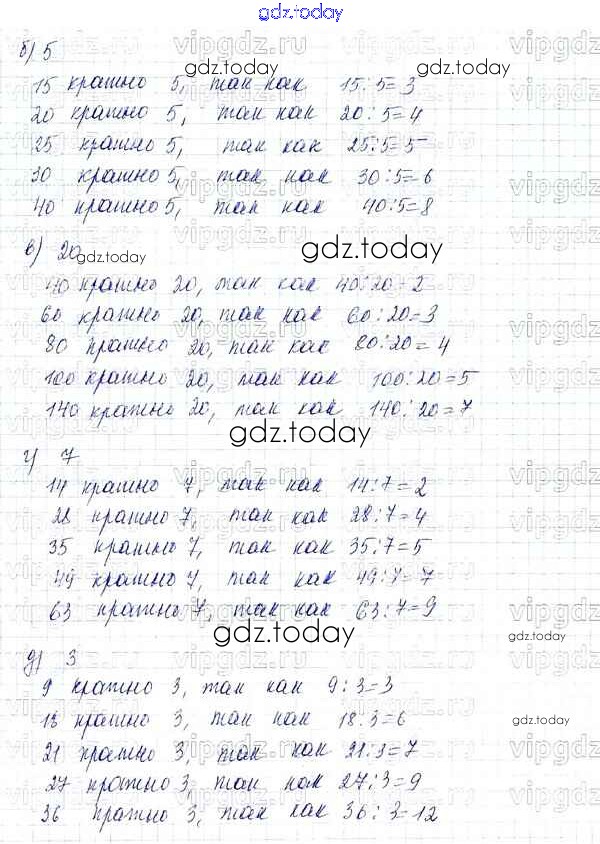 gdz.today
б) 5
gdz.today gdz.today
15 кратно 5, так как 15:5=3
20 кратно 5, так как 20:5=4
25 кратно 5, так как 25:5=5
30 кратно 5, так как 30:5=6
40 кратно 5, так как 40:5=8
в) 20
gdz.today gdz.today
40 кратно 20, так как 40:20=2
60 кратно 20, так как 60:20=3
80 кратно 20, так как 80:20=4
100 кратно 20, так как 100:20=5
140 кратно 20, так как 140:20=7
gdz.today
г) 7
14 кратно 7, так как 14:7=2
28 кратно 7, так как 28:7=4
35 кратно 7, так как 35:7=5
49 кратно 7, так как 49:7=7
63 кратно 7, так как 63:7=9
gdz.today gdz.today
д) 3
9 кратно 3, так как 9:3=3
18 кратно 3, так как 18:3=6
gdz.today
21 кратно 3, так как 21:3=7
27 кратно 3, так как 27:3=9
36 кратно 3, так как 36:3=12